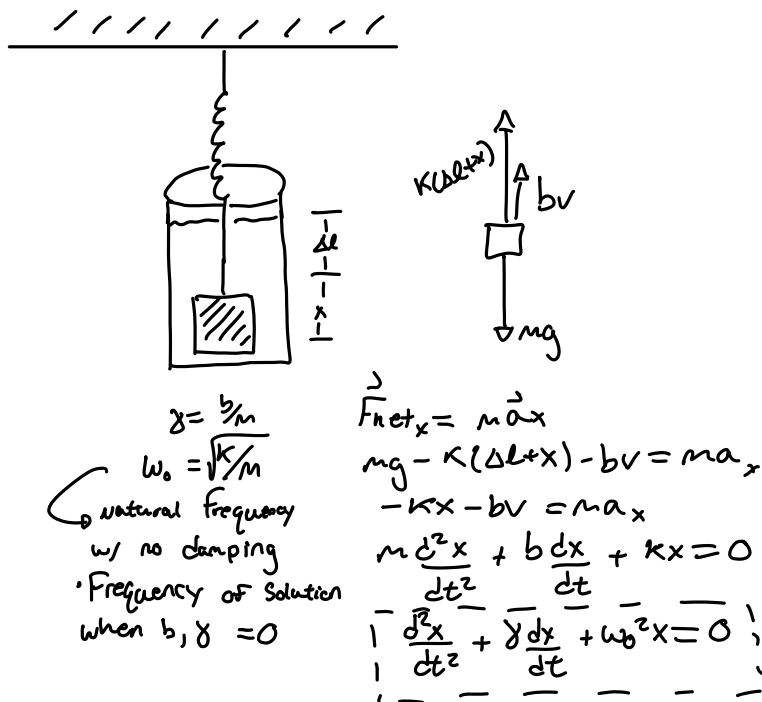 Δl
x
K(Δl+x)
bv
mg
γ = b/m
ω₀ = √K/m
natural frequency
w/ no damping
·Frequency of solution
when b, γ = 0
F⃗netₓ = ma⃗x
mg - K(Δl+x) - bv = maₓ
-Kx - bv = maₓ
m d²x/dt² + b dx/dt + Kx = 0
d²x/dt² + γ dx/dt + ω₀²x = 0